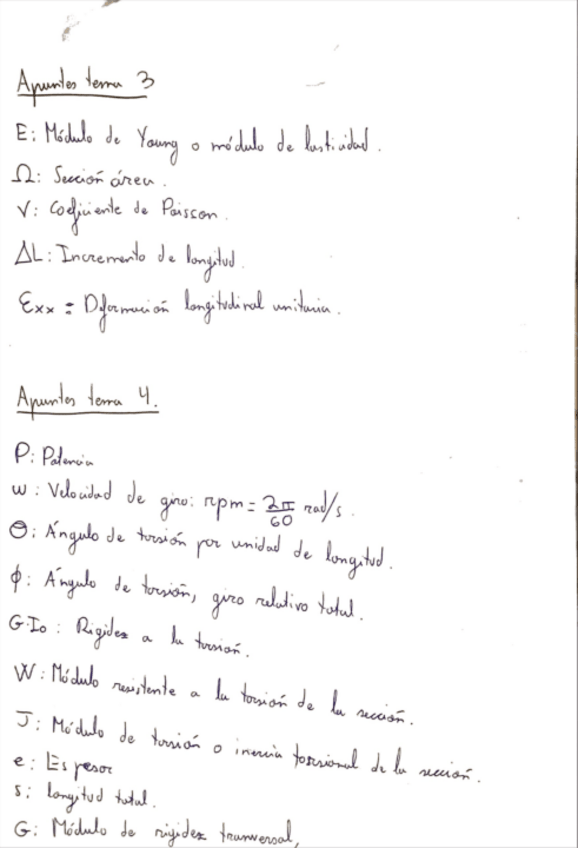 Apuntes tema 3
E: Módulo de Young o módulo de lasticidad.
Ω: Sección área.
V: Coeficiente de Poisson.
ΔL: Incremento de longitud.
Exx = Dformación longitudinal unitaria.
Apuntes tema 4.
P: Potencia
w: Velocidad de giro: rpm = 2π/60 rad/s.
Θ: Ángulo de torsión por unidad de longitud.
ϕ: Ángulo de torsión, giro relativo total.
G·Io: Rigidez a la torsión.
W: Módulo resistente a la torsión de la sección.
J: Módulo de torsión o inercia torsional de la sección.
e: Espesor
s: longitud total.
G: Módulo de rigidez tranversal,